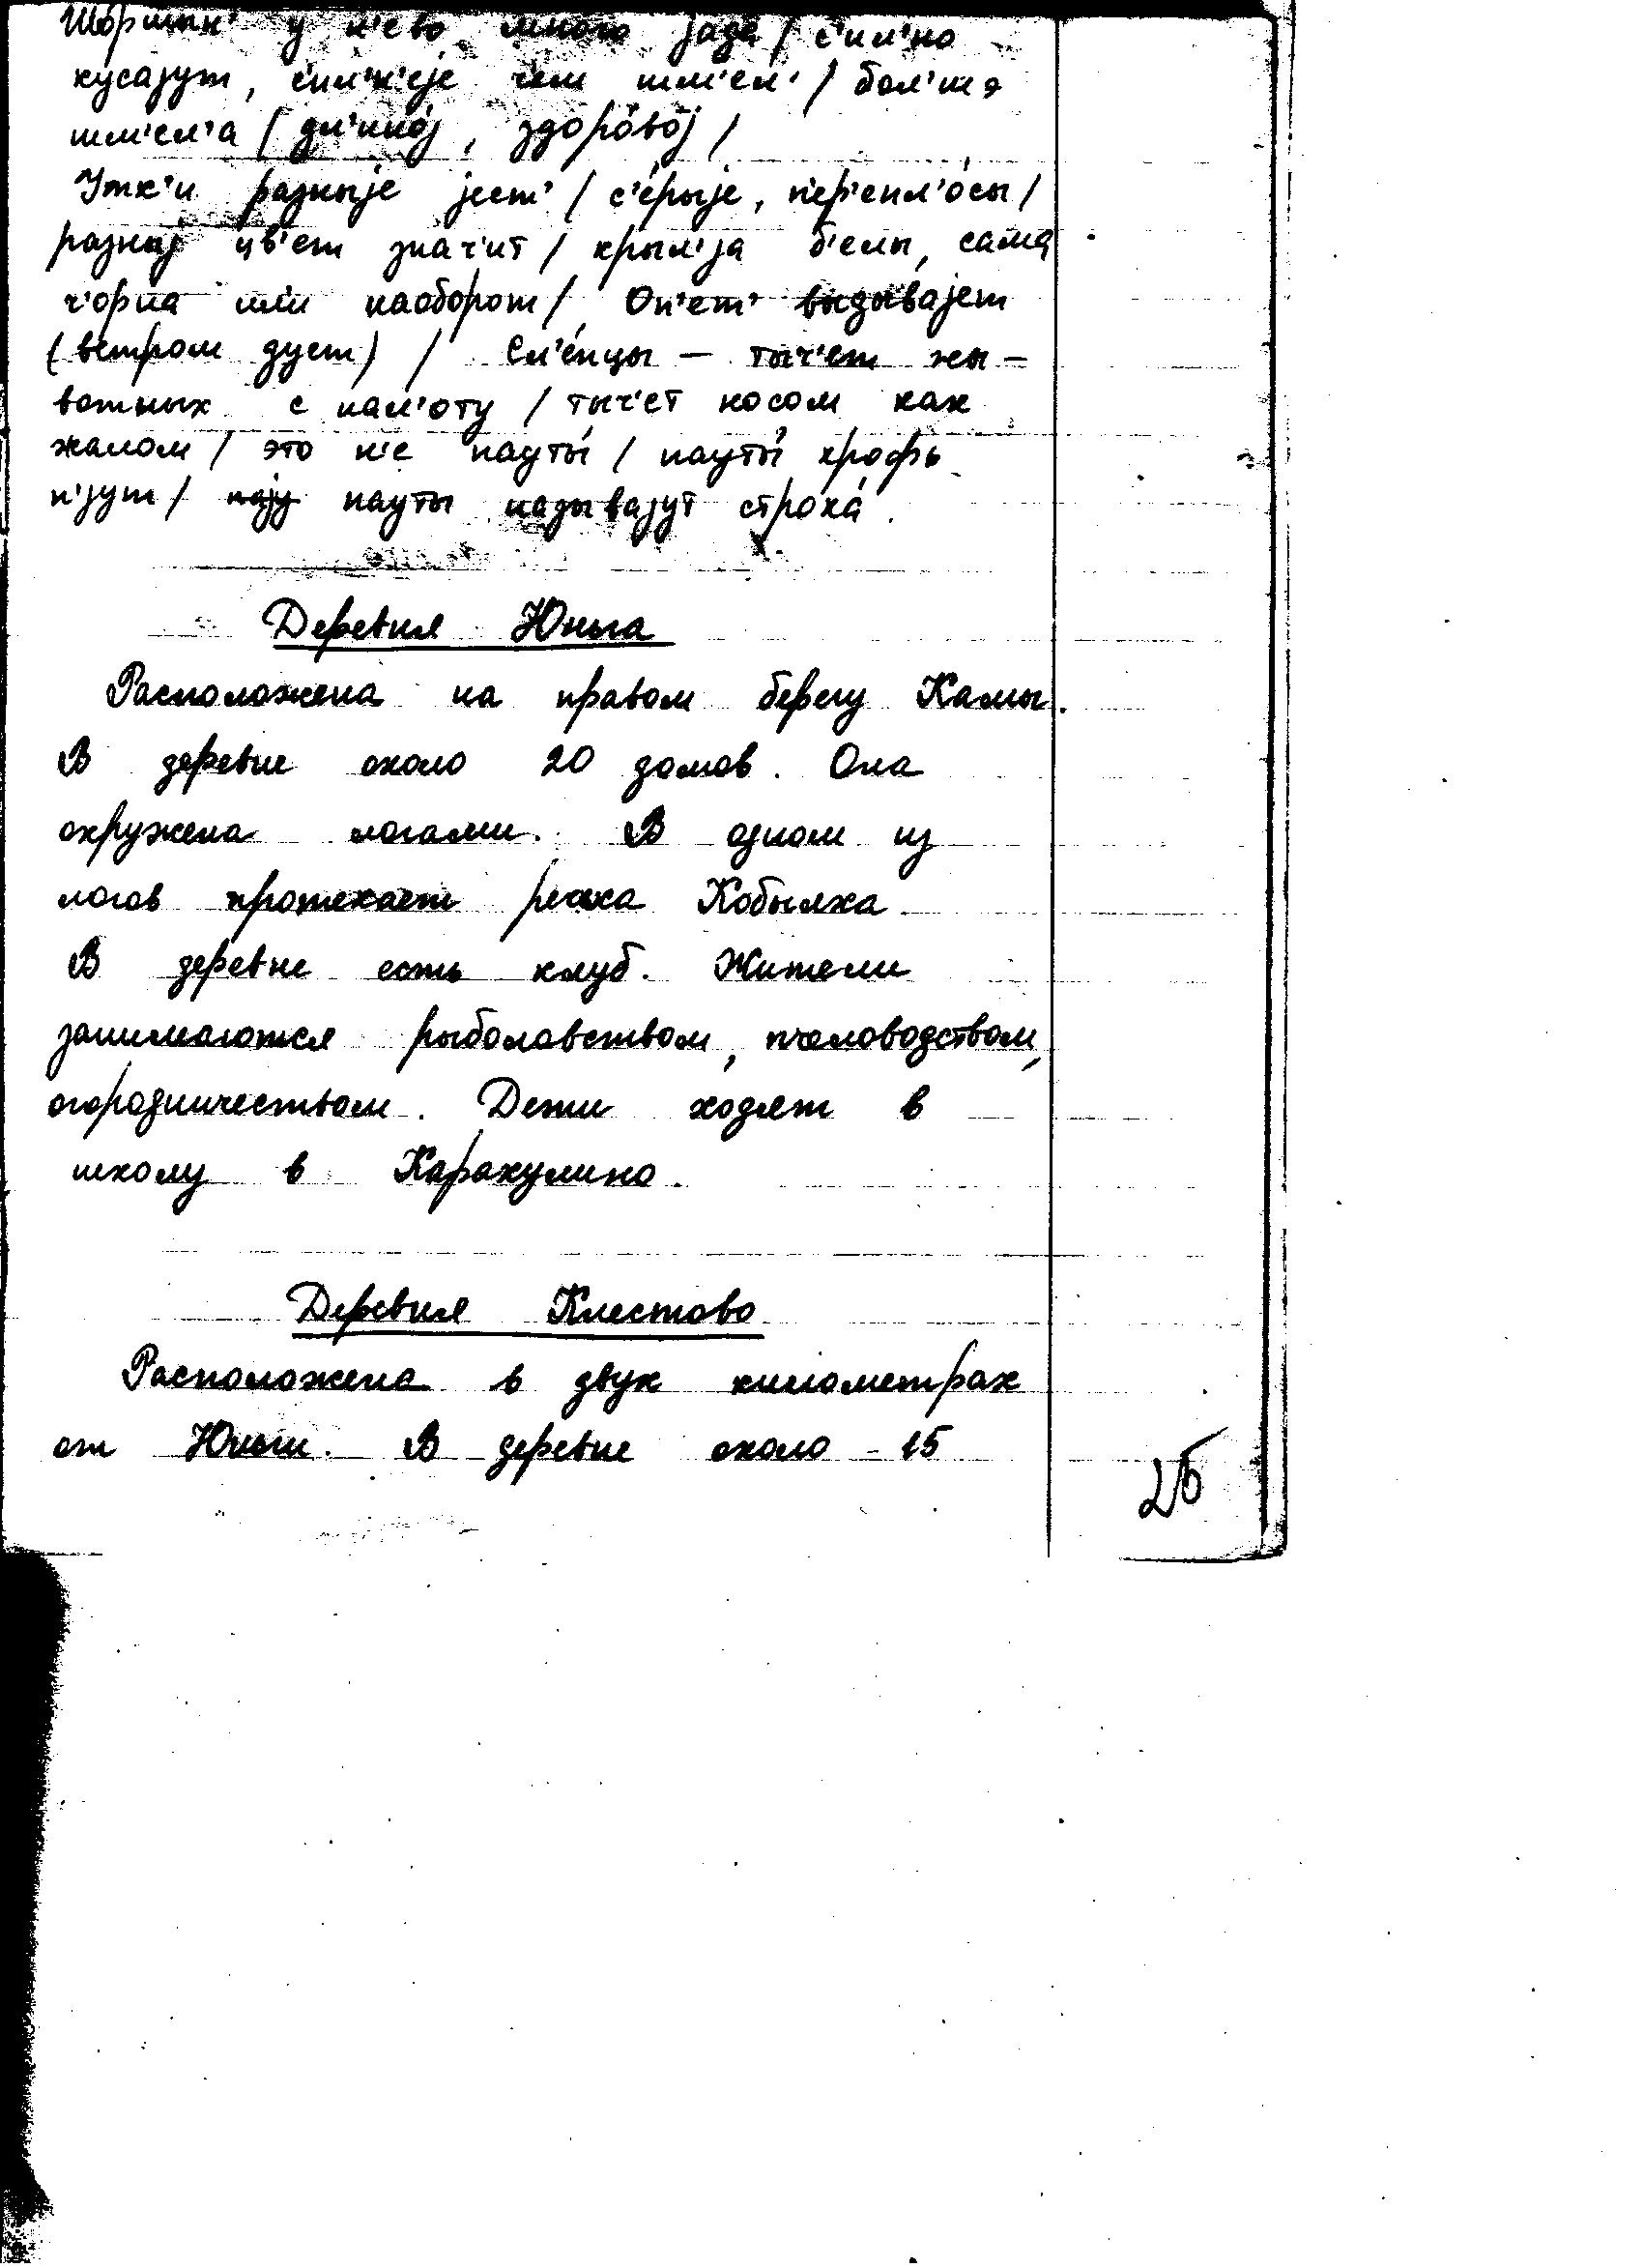 Шо́ршын' у н'ево много jада / с'ил'но
кусаjут, с'ил'н'еjе чем шм'ел' / бол'шэ
шм'ел'а / дл'ино́j, здоро́во́j /
Утк'и разныjе jест' / с'е́рыjе, п'ер'епл'о́сы /
разныj цв'ет знач'ит / крыл'jа б'елы, сама
ч'орна или наоборот / Оп'ет' выдывajет
(ветром дует) / Сл'е́пцы – тыч'ет жы–
вотных с нал'оту / тыч'ет носом как
жалом / это н'е пауты́ / пауты́ крофь
п'jут / пауты надывajут строка́.
Деревня Юньга
Расположена на правом берегу Камы.
В деревне около 20 домов. Она
окружена логами. В одном из
логов протекает речка Кобылка
В деревне есть клуб. Жители
занимаются рыболовством, пчеловодством,
огородничеством. Дети ходят в
школу в Каракулино.
Деревня Клестово
Расположена в двух километрах
от Юньги. В деревне около 15
26